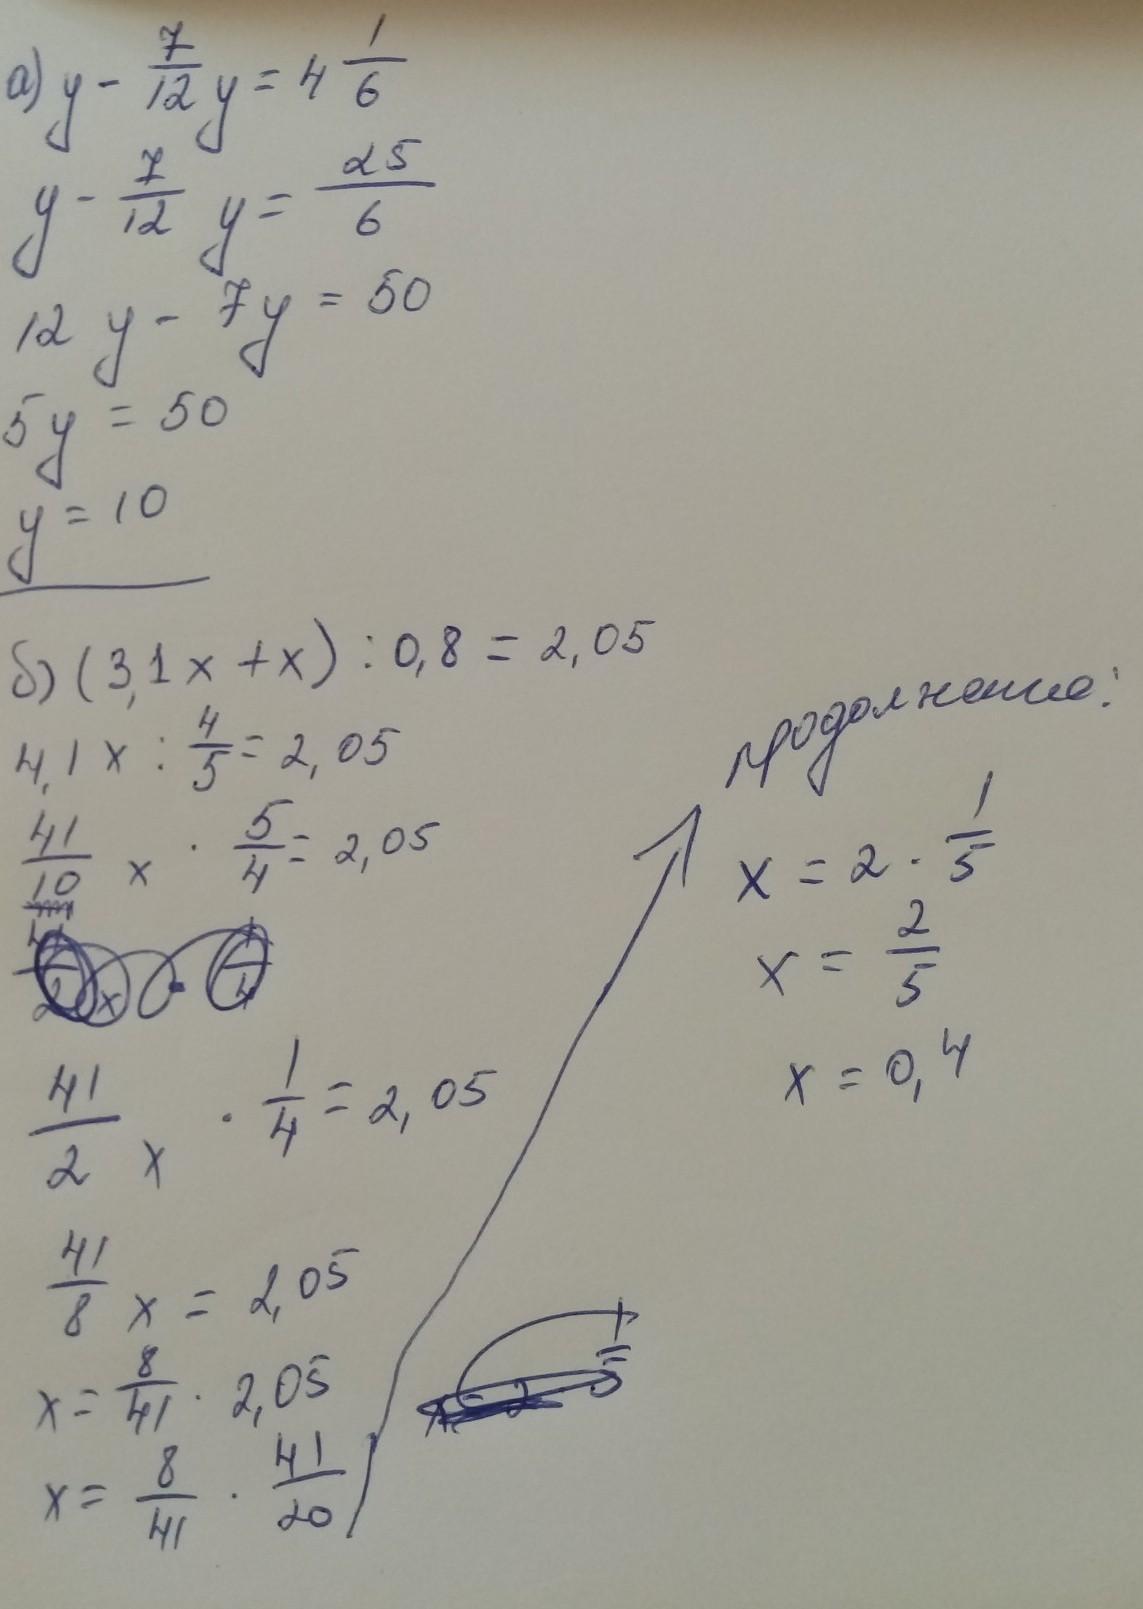 а) y - 7/12 y = 4 1/6
y - 7/12 y = 25/6
12 y - 7y = 50
5y = 50
y = 10
б) (3,1x + x) : 0,8 = 2,05
4,1x : 4/5 = 2,05
41/10 x · 5/4 = 2,05
41/2 x · 1/4 = 2,05
41/8 x = 2,05
x = 8/41 · 2,05
x = 8/41 · 41/20
продолжение:
x = 2 · 1/5
x = 2/5
x = 0,4